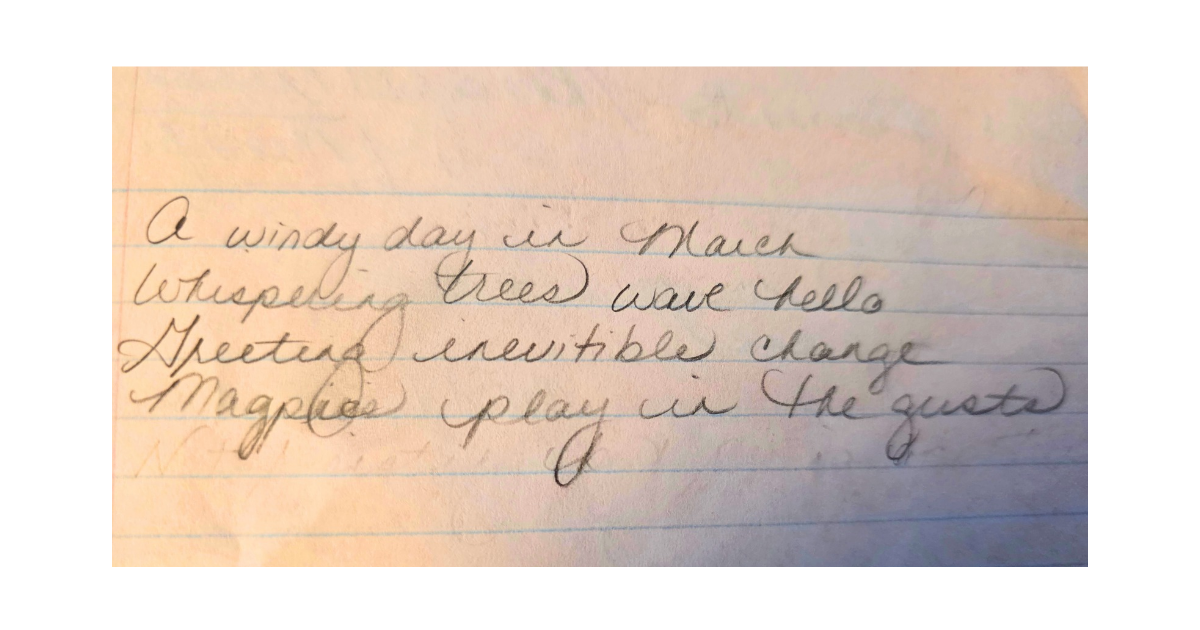 A windy day in March
Whispering trees wave hello
Greeting inevitible change
Magpies play in the gusts